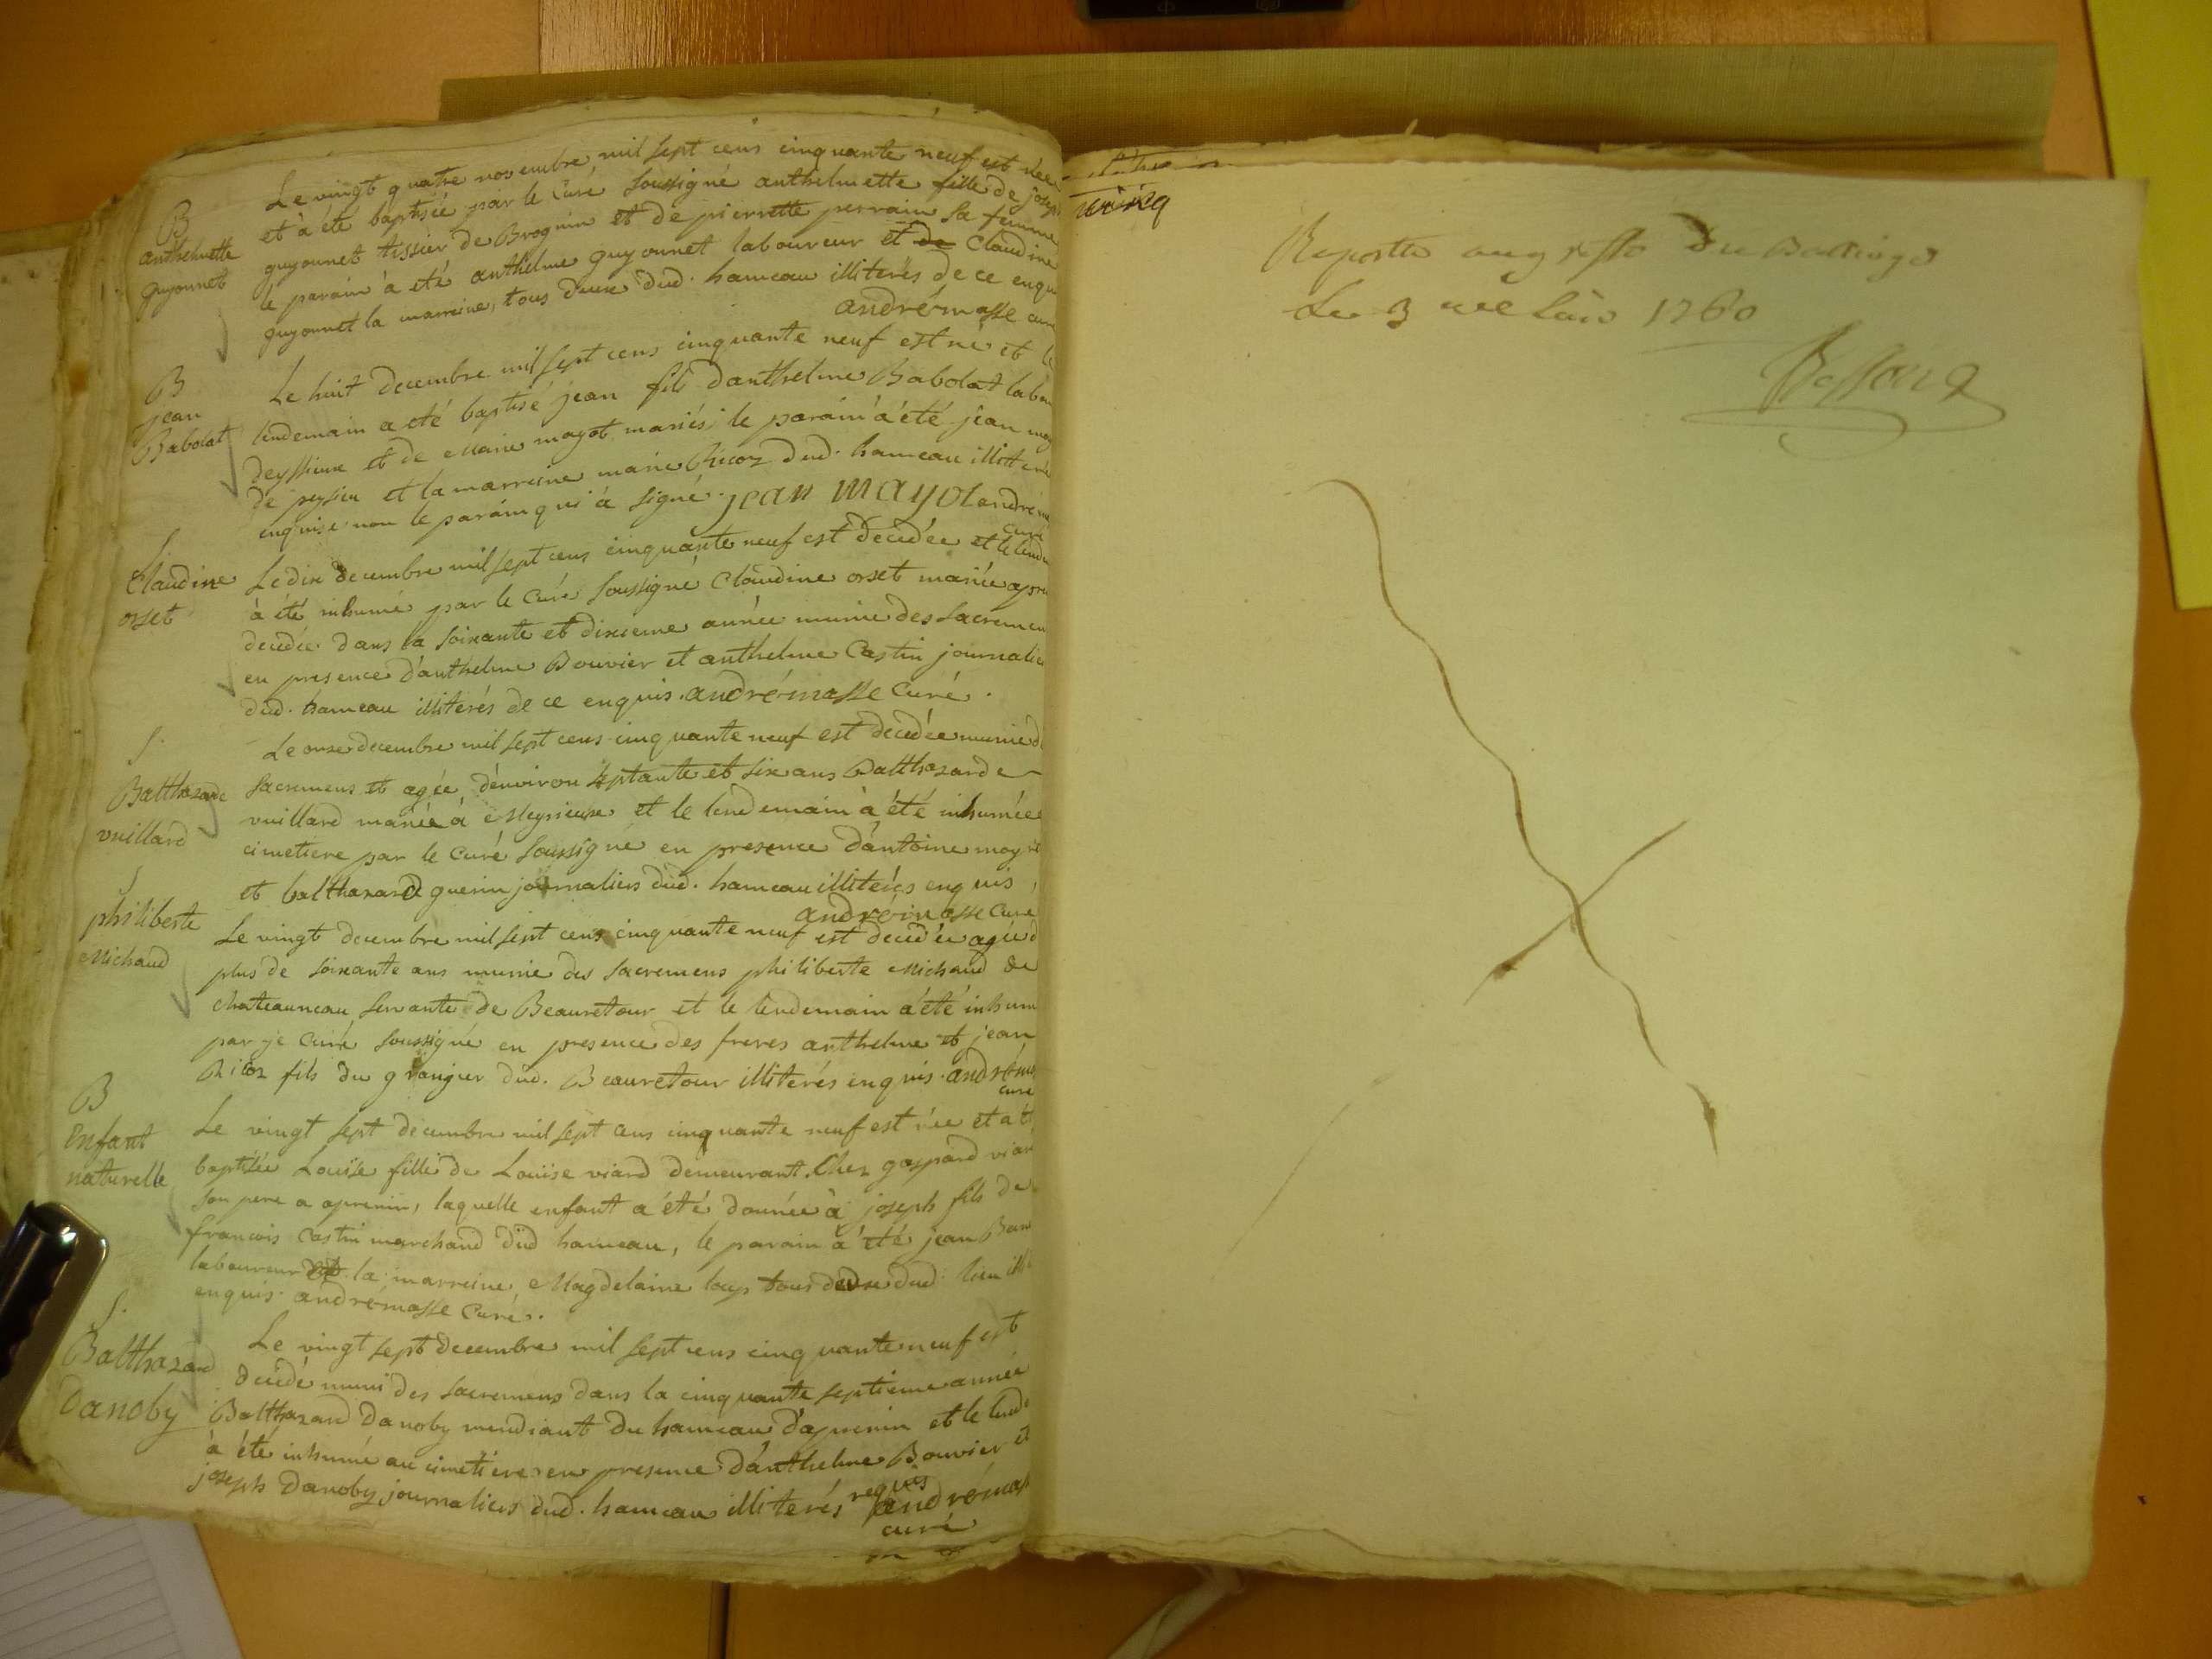 B
anthelmette
guyonnet
Le vingt quatre novembre mil sept cens cinquante neuf est née
et à eté baptisée par le Curé soussigné anthelmette fille de joseph
guyonnet tissier de Brognin et de pierrette perrain sa femme
le parain à eté anthelme guyonnet laboureur et de Claudine
guyonnet la marreine, tous deux dud. hameau illiterés de ce enqu
andrémasse curé
B
jean
Babolat
Le huit decembre mil sept cens cinquante neuf est né et le
lendemain a eté baptisé jean fils d'anthelme Babolat labou
deyssieux et de Marie mayot mariés; le parain a été jean may
de peysieu et la marreine marie Ricoz dud. hameau illiteré
enquise non le parain qui à signé. jean mayot andrém
curé
S
Claudine
orset
Le dix decembre mil sept cens cinquante neuf est decedée et le lende
à été inhumé par le Curé soussigné Claudine orset mariée apre
decedée dans la soixante et dixieme année munie des sacremen
en presence d'anthelme Bouvier et anthelme Castin journalie
dud. hameau illiterés de ce enquis. andrémasse Curé.
S.
Balthazarde
vuillard
Le onze decembre mil sept cens cinquante neuf est decedée munie de
sacremens et agée d'environ septante et six ans Balthazarde
vuillard mariée à Meyrieux et le lendemain à été inhumée
cimetiere par le Curé soussigné en presence d'antoine moyr
et balthazard guerin journaliers dud. hameau illiterés enquis
andrémasse Curé
S
philiberte
Michaud
Le vingt decembre mil sept cens cinquante neuf est decedée agée d
plus de soixante ans munie des sacremens philiberte Michaud de
chateauneau servante de Beauretour et le lendemain a été inhum
par je Curé soussigné en presence des freres anthelme et jean
Ricoz fils du granjer dud. Beauretour illiterés enquis. andrémas
curé
B
Enfant
naturelle
Le vingt sept decembre mil sept cens cinquante neuf est née et a ét
baptisée Louise fille de Louise viard demeurant Chez gaspard viar
son pere a apremin, laquelle enfant a été donnée à joseph fils de
francois Castin marchand dud hameau, le parain a été jean Bar
laboureur et la marreine Magdelaine loup tous deux dud. lieu illi
enquis andrémasse Curé.
S.
Balthazard
Danoby
Le vingt sept decembre mil sept cens cinquante neuf est
decedé muni des sacremens dans la cinquante septieme année
Balthazard Danoby mendiant du hameau d'apremin et le lende
à été inhumé au cimetiere en presence d'anthelme Bouvier et
joseph Danoby journaliers dud. hameau illiterés requis andrémas
curé
Le 3 1760